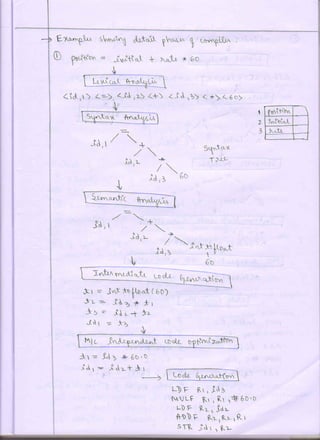 → Examples showing detail phases of compiler.
① position = initial + rate * 60
Lexical Analysis
<id,1> <=> <id,2> <+> <id,3> <*> <60>
Syntax Analysis
=
id,1 +
id,2 *
id,3 60
Syntax
Tree
1 position
2 initial
3 rate
Semantic Analysis
=
id,1 +
id,2 *
id,3 int to float
60
Intermediate code Generation
t1 = int to float (60)
t2 = id3 * t1
t3 = id2 + t2
id1 = t3
M/C independent code optimization
t1 = id3 * 60.0
id1 = id2 + t1
→ Code Generation
LDF R1, id3
MULF R1, R1, #60.0
LDF R2, id2
ADDF R2, R2, R1
STR id1, R2